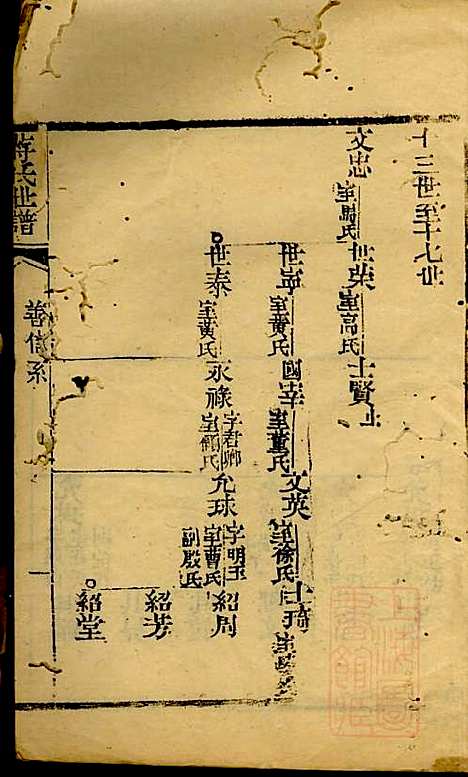 十三世至十七世
文忠 室馬氏 世榮 室高氏 士賢 止
世寧 室黄氏 國宰 室董氏 文英 室徐氏 士琦 室
世泰 室黄氏 永祿 字君卿 室顧氏 允球 字明玉 室曹氏 副殷氏 紹周
紹芳
紹堂
蔣氏世譜 善信系